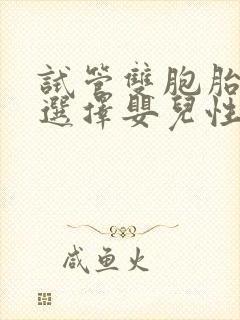 試管雙胞胎
選擇嬰兒性
咸鱼火